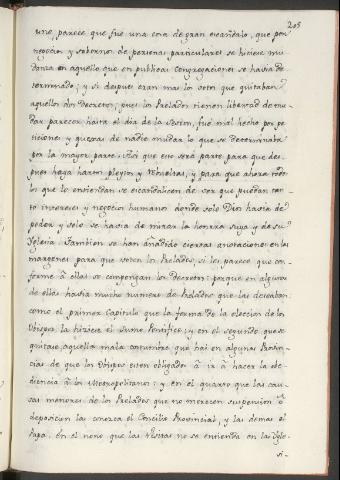 205
uno, parece que fué una cosa de gran escandalo, que por
negocios y sobornos de personas particulares se hiciese mu-
danza en aquello que en publicas Congregaciones se havia de-
terminado; y si despues eran mas los votos que quitaban
aquellos dos Decretos, pues los Prelados tienen libertad de mu-
dar parecer hasta el dia de la Sesion, fué mal hecho por pe-
ticiones y quexas de nadie mudar lo que se determinaba
por la mayor parte: Asi que eso será parte para que des-
pues haya hartos pleytos y rebueltas, y para que ahora todos
los que lo entiendan se escandalicen de ver que puedan tan-
to intereses y negocios humanos donde solo Dios havia de
poder y solo se havia de mirar la honrra suya y de su
Iglesia. Tambien se han añadido ciertas anotaciones en las
margenes para que voten los Prelados, si les parece que con-
forme á ellas se compongan los Decretos: porque en algunas
de ellas havia mucho numero de Prelados que las deseaban
como el primer Capitulo que la forma de la eleccion de los
Obispos la hiciese el Sumo Pontifice; y en el segundo que se
quitase aquella mala costumbre que hai en algunas Provin-
cias de que los Obispos esten obligados á ir á hacer la obe-
diencia á los Metropolitanos: y en el quarto que las cau-
sas menores de los Prelados que no merecen suspension ó
deposicion las conozca el Concilio Provincial, y las demas el
Papa. En el nono que las Visitas no se entienda en las Ygle-
si-